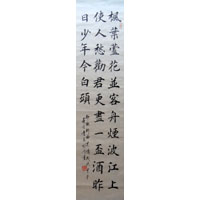 楓葉蘆花並客舟煙波江上
使人愁勸君更盡一盃酒昨
日少年今白頭